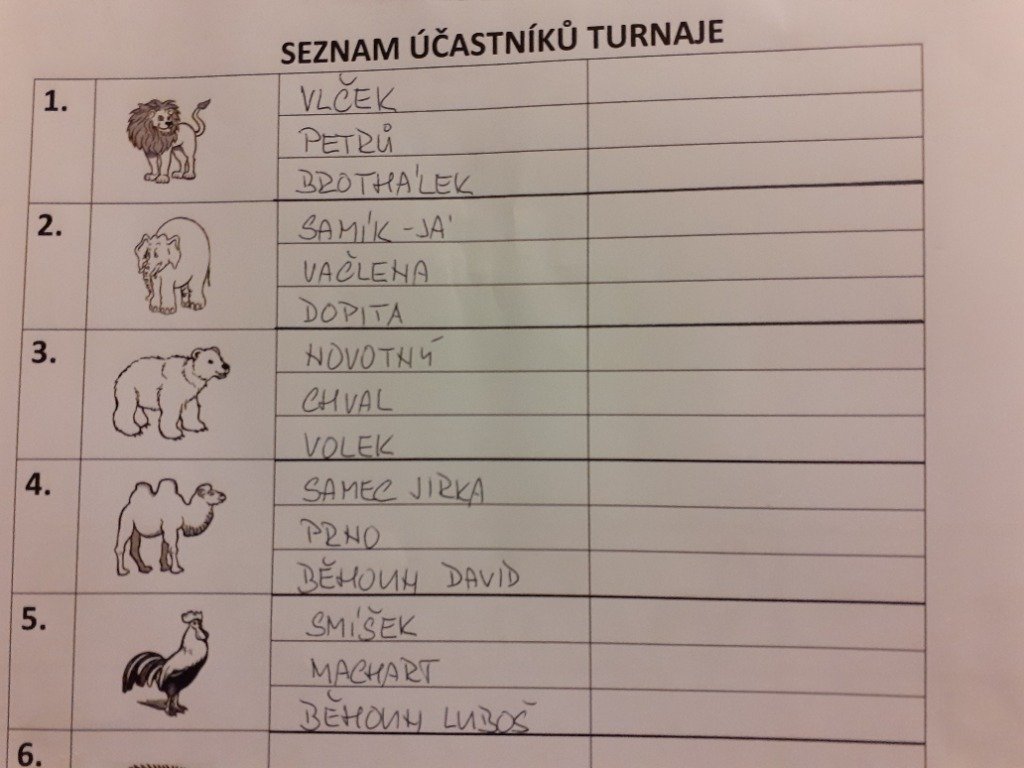 SEZNAM ÚČASTNÍKŮ TURNAJE
1.
VLČEK
PETRŮ
BROTHÁLEK
2.
SAMÍK - JÁ
VAČLENA
DOPITA
3.
NOVOTNÝ
CHVAL
VOLEK
4.
SAMEC JIRKA
PRNO
BĚHOUN DAVID
5.
SMÍŠEK
MACHART
BĚHOUN LUBOŠ
6.